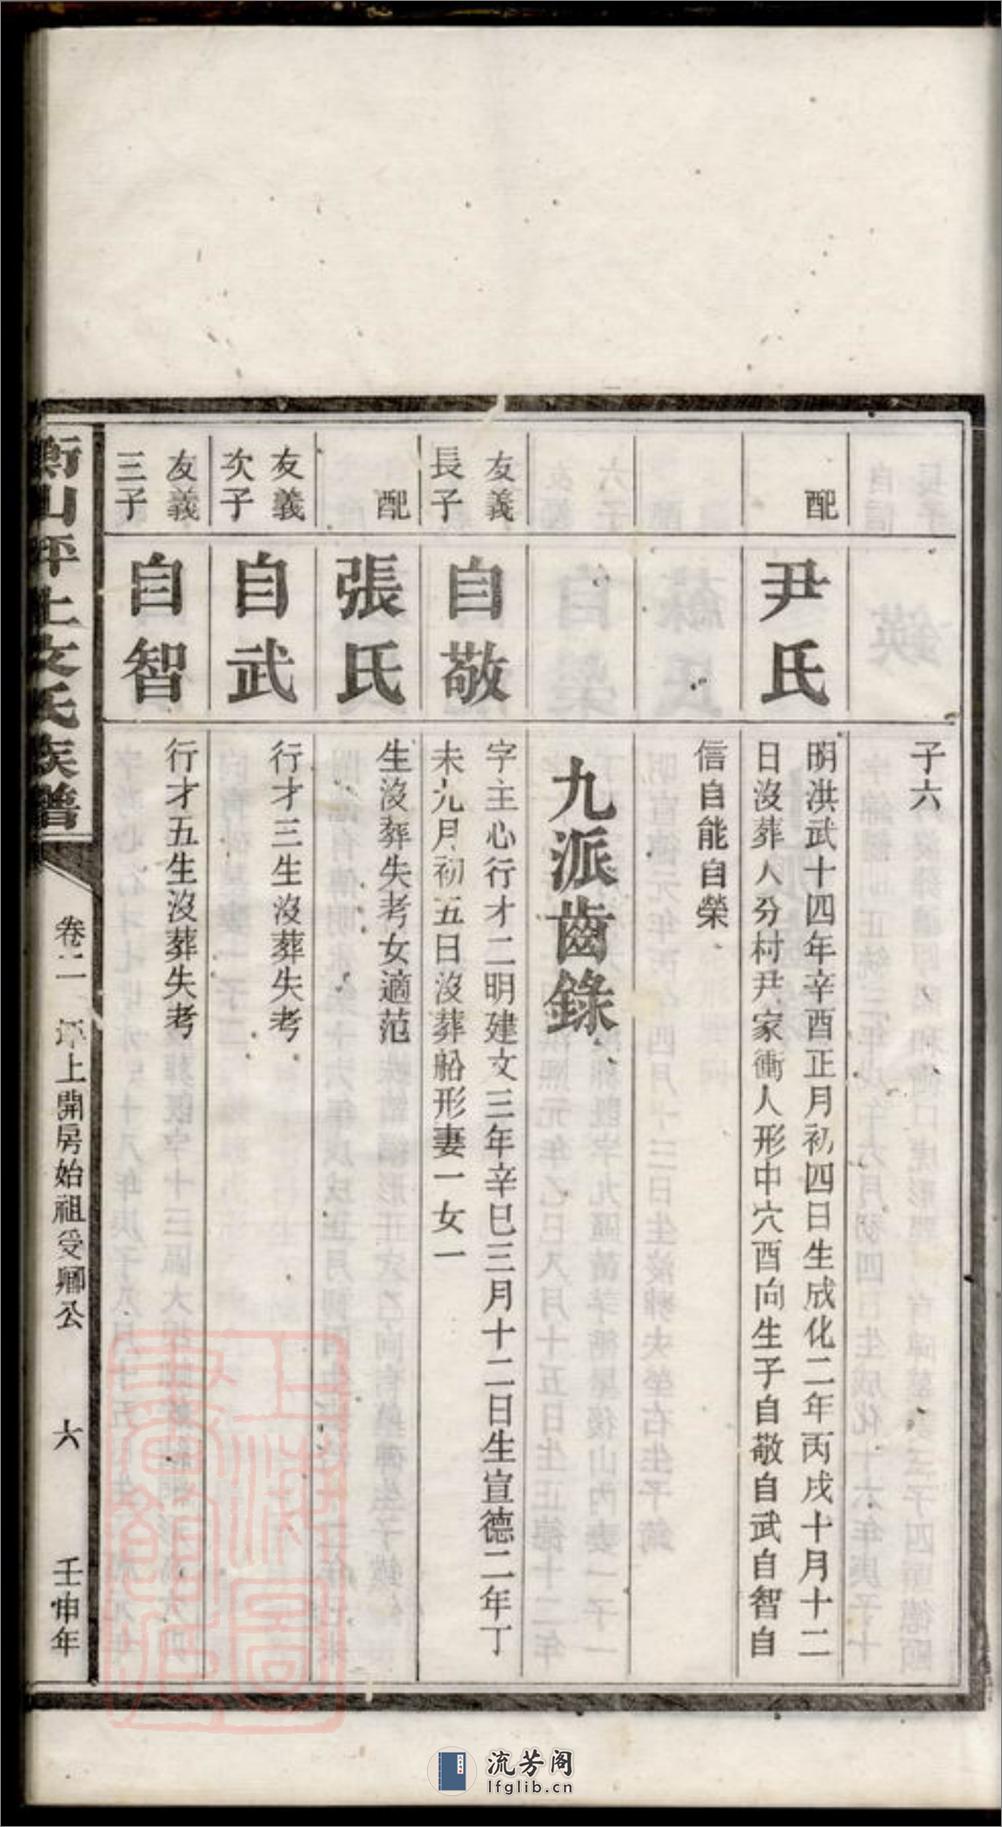 子六
配
尹氏
明洪武十四年辛酉正月初四日生成化二年丙戌十月十二
日沒葬人分村尹家衝人形中穴酉向生子自敬自武自智自
信自能自榮
九派齒錄
友義
長子
自敬
字主心行才二明建文三年辛巳三月十二日生宣德二年丁
未九月初五日沒葬船形妻一女一
配
張氏
生沒葬失考女適范
友義
次子
自武
行才三生沒葬失考
友義
三子
自智
行才五生沒葬失考
衡山坪上文氏族譜
卷二
坪上開房始祖受卿公
六
壬申年
流芳阁
lfglib.cn